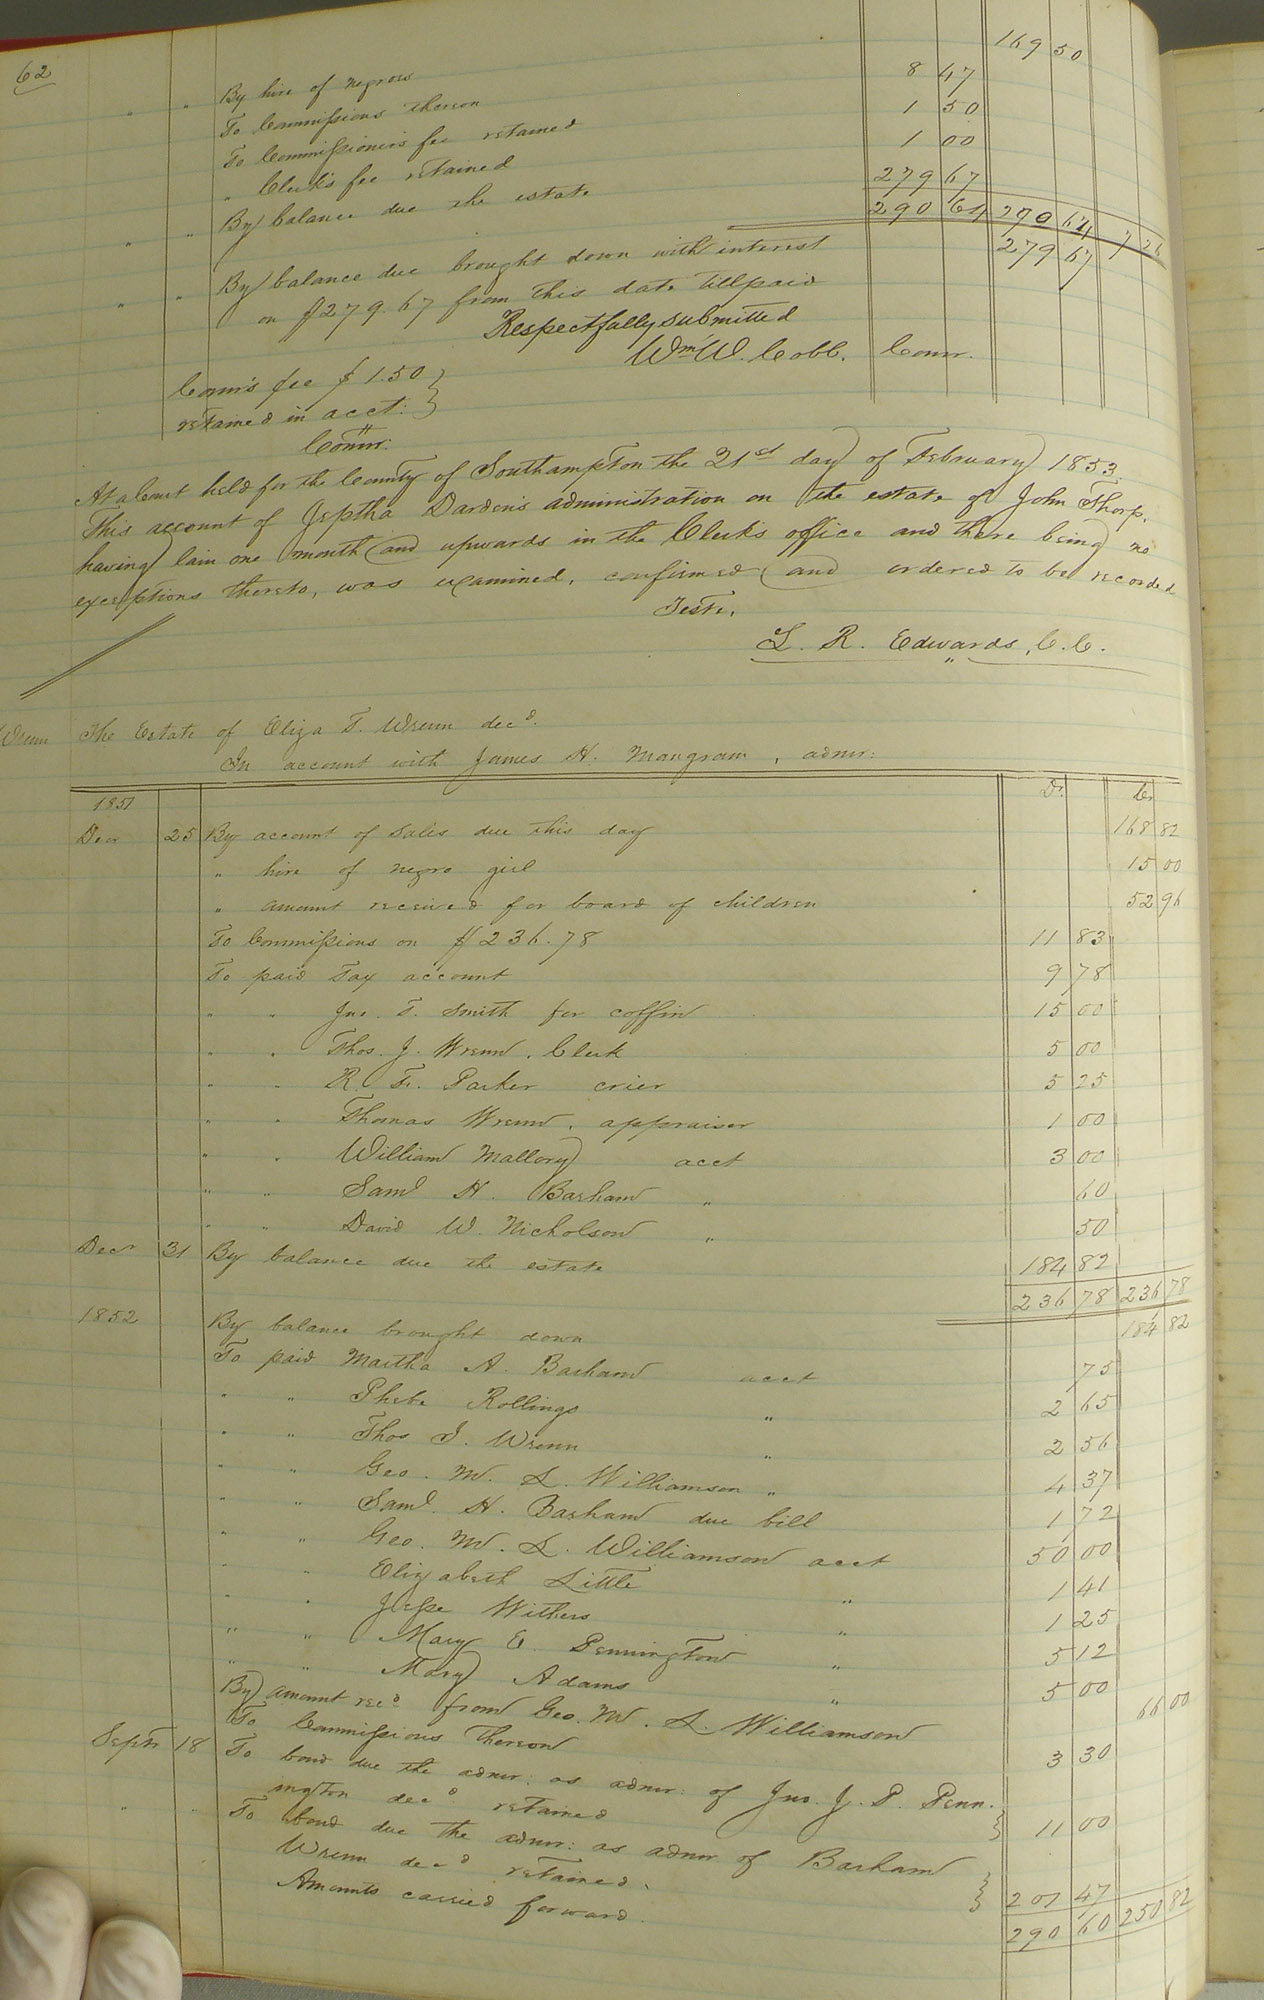 62
" " By hire of negroes 169 50
To Commissions thereon 8 47
To Commissioner's fee retained 1 50
" Clerk's fee retained 1 00
" " By balance due the estate 279 67
290 64 290 64 7 26
" " By balance due brought down with interest 279 67
on $279.67 from this date till paid
Respectfully submitted
Wm W. Cobb, Comr.
Comr's fee $1.50 }
retained in acct: }
Comr:
At a Court held for the County of Southampton the 21st day of February 1853.
This account of Jeptha Darden's administration on the estate of John Thorp,
having lain one month and upwards in the Clerk's office and there being no
exceptions thereto, was examined, confirmed and ordered to be recorded
Teste,
L. R. Edwards, C.C.
Wrenn The Estate of Eliza T. Wrenn decd.
In account with James H. Mangram, admr:
1851 Dr. Cr
Decr 25 By account of sales due this day 168 82
" hire of negro girl 15 00
" amount received for board of children 52 96
To Commissions on $236.78 11 83
To paid Tax account 9 78
" " Jno. T. Smith for coffin 15 00
" " Thos. J. Wrenn, Clerk 5 00
" " R. F. Parker crier 5 25
" " Thomas Wrenn, appraiser 1 00
" " William Mallory acct 3 00
" " Saml H. Barham " 60
" " David W. Nicholson " 50
Decr 31 By balance due the estate 184 82
236 78 236 78
1852 By balance brought down 184 82
To paid Martha A. Barham acct 75
" " Phebe Rollings " 2 65
" " Thos J. Wrenn " 2 56
" " Geo. M. L. Williamson " 4 37
" " Saml. H. Barham due bill 1 72
" " Geo. M. L. Williamson acct 50 00
" " Elizabeth Little " 1 41
" " Jesse Withers " 1 25
" " Mary E. Pennington " 5 12
" " Mary Adams " 5 00
By amount recd from Geo. M. L. Williamson 66 00
To Commissions thereon 3 30
Septr 18 To bond due the admr: as admr: of Jno. J. P. Penn-
ington decd. retained } 11 00
" " To bond due the admr: as admr of Barham
Wrenn decd retained. } 201 47
Amounts carried forward 290 60 250 82